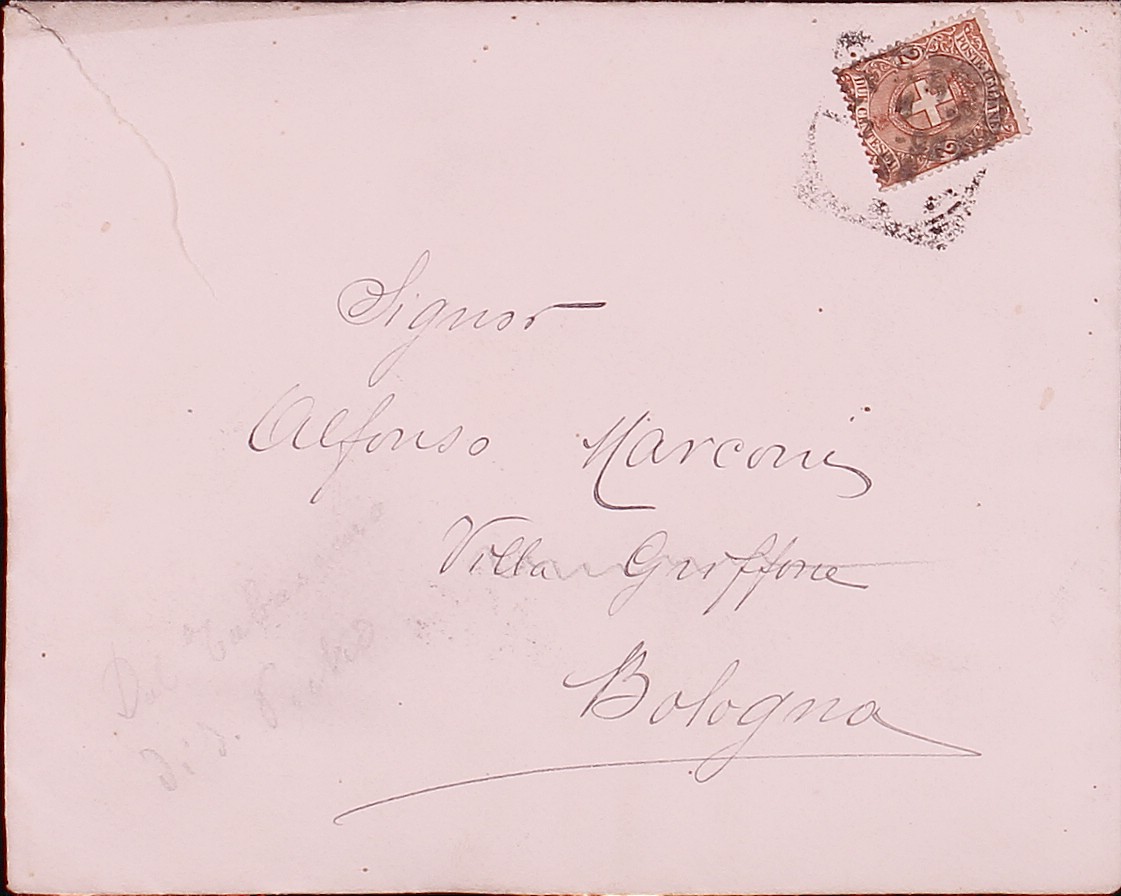 POSTE ITALIANE
2
DUE CENTESIMI
2
Signor
Alfonso Marconi
Villa Griffone
Bologna